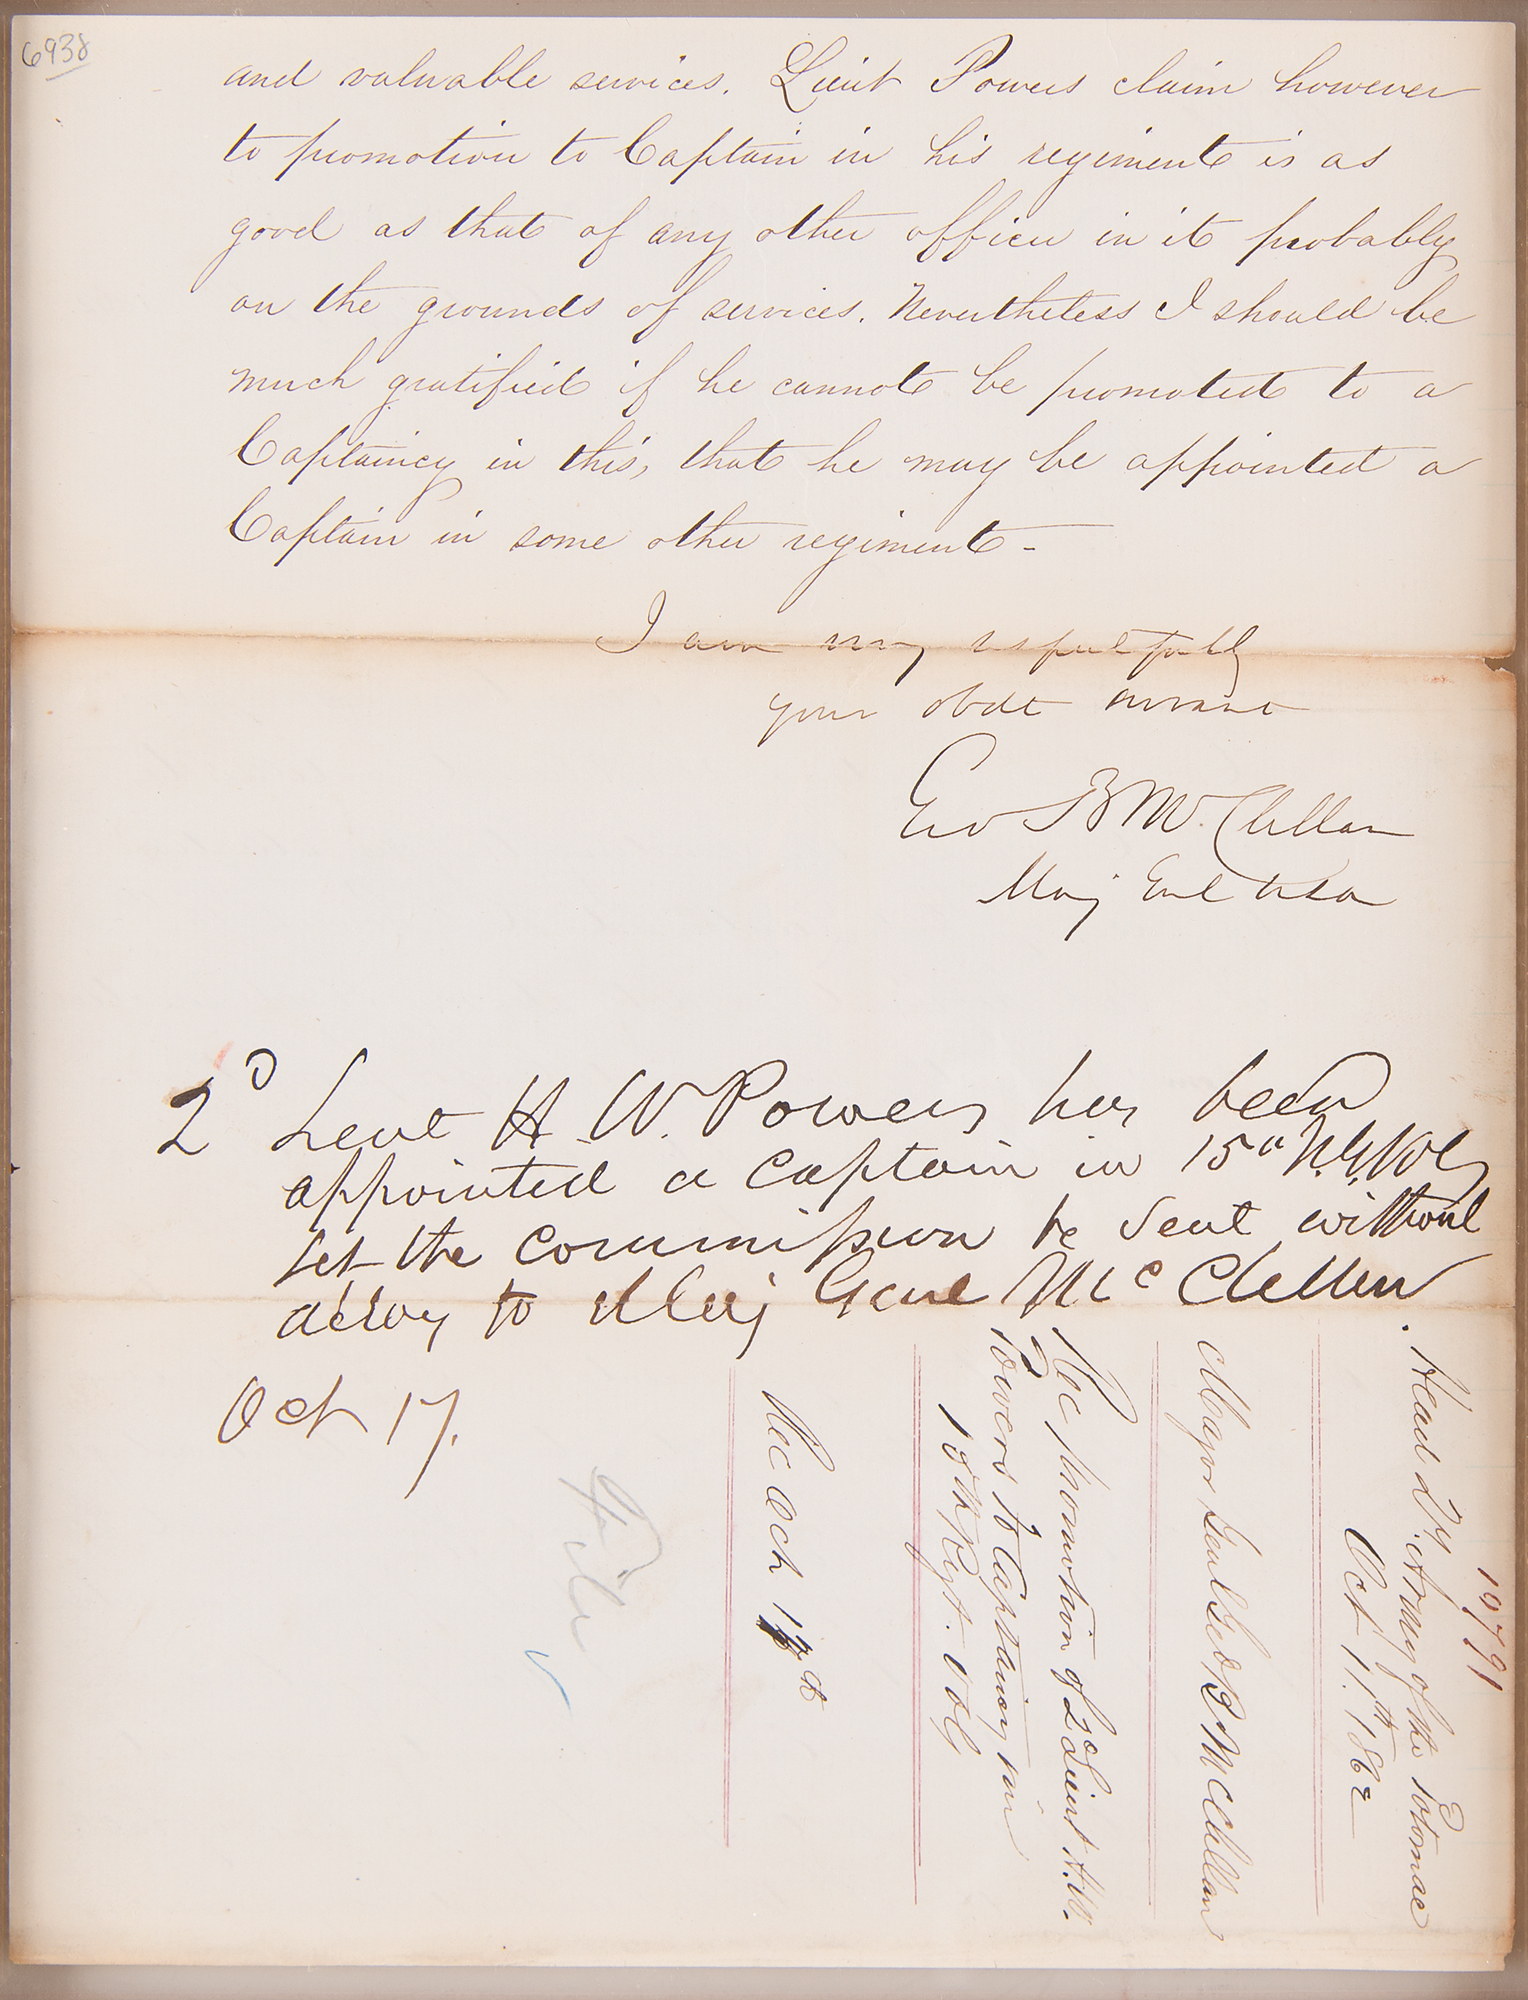 6938
and valuable services. Lieut Powers claim however
to promotion to Captain in his regiment is as
good as that of any other officer in it probably
on the grounds of services. Nevertheless I should be
much gratified if he cannot be promoted to a
Captaincy in this, that he may be appointed a
Captain in some other regiment -
I am very respectfully
your obdt servant
Geo B McClellan
Maj Genl USA
2d Leut H. W. Powers has been
appointed a Captain in 15th N.Y. Vols
let the commission be sent without
delay to Maj Genl McClellan
Oct 17.
19791
Head Qrs. Army of the Potomac
Oct 11th 1862
Major Genl Geo B McClellan
Rec promotion of 2d Lieut H.W.
Powers to Captaincy in
Regt. Vols
Rec Oct 17th
File